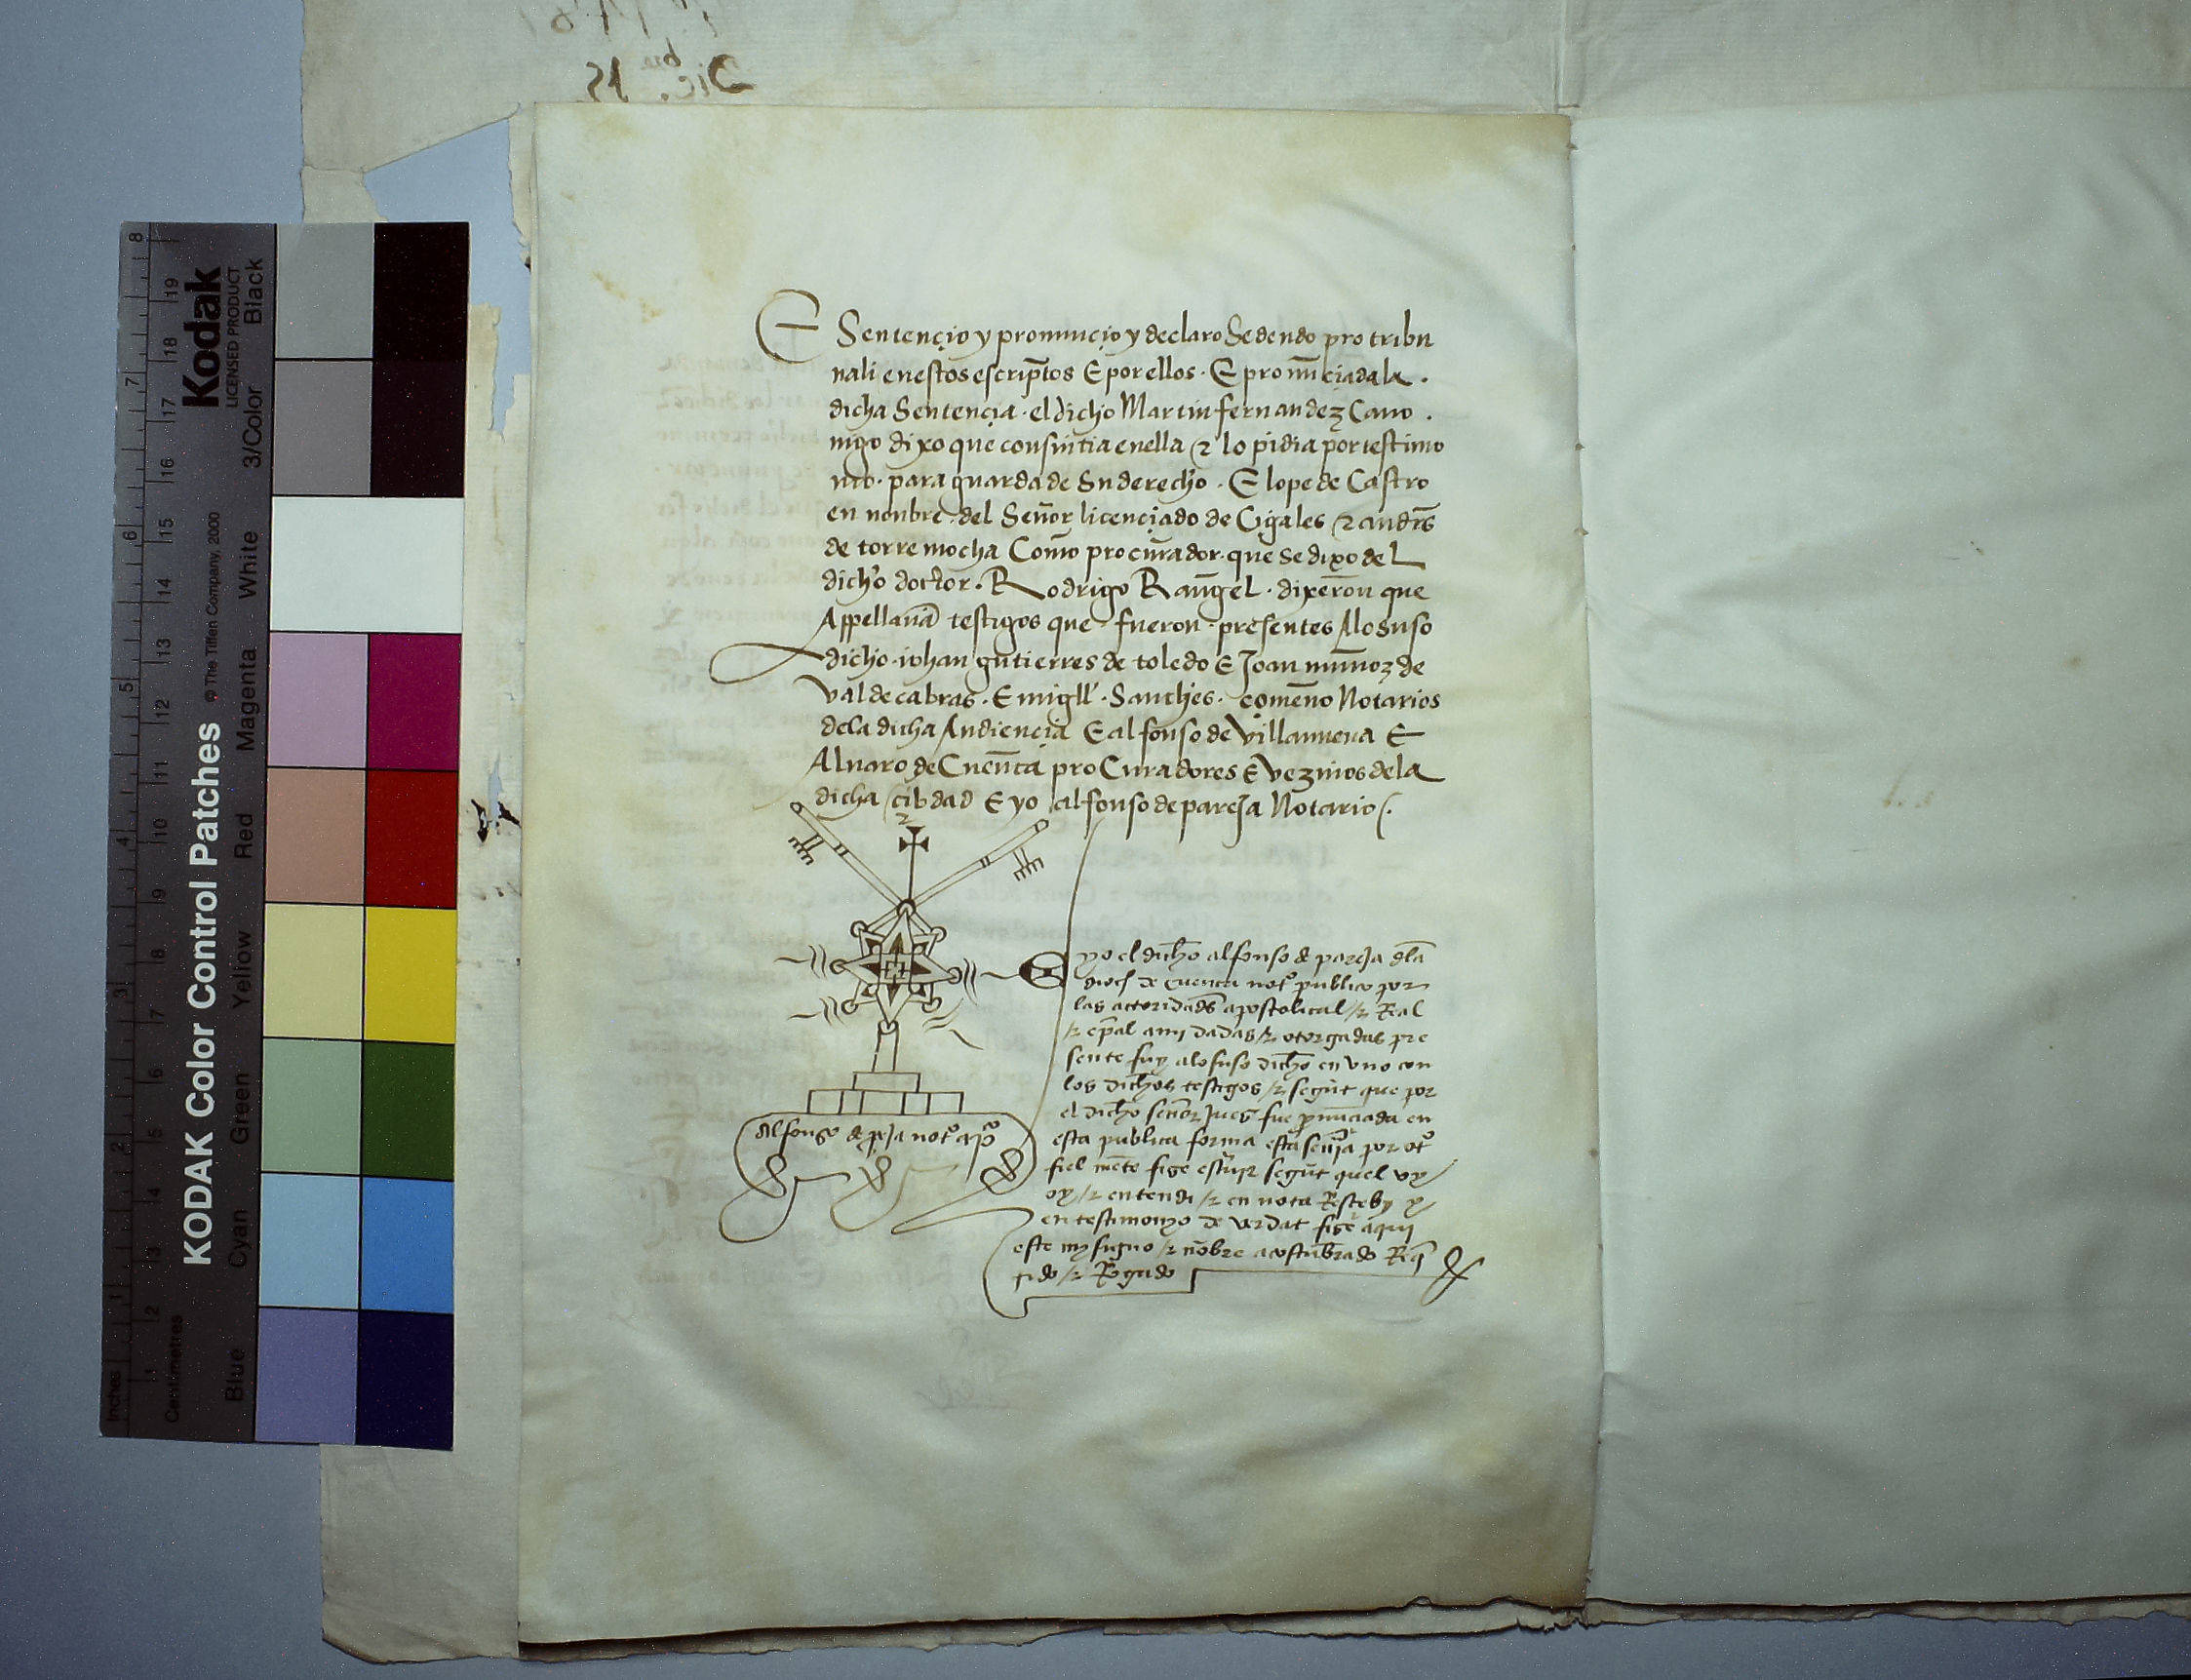 Dic.bre 15
E Sentençio y pronunçio y declaro Sedendo pro tribu
nali en estos escriptos E por ellos · E pronunçiada la ·
dicha Sentençia · el dicho Martin fernandez Cano ·
nigo dixo que consintia en ella τ lo pidia por testimo
nio · para guarda de Su derecho · E lope de Castro
en nonbre · del Señor liçençiado de Cigales τ andrs
de torremocha Como procurador · que se dixo del
dicho doctor · Rodrigo Rangel · dixeron que
Appellauã testigos que fueron · presentes Alo suso
dicho · iohan gutierres de toledo E Joan munnoz de
Valdecabras · E migll' · Sanches · comeno Notarios
dela dicha Audiençia E alfonso de Villanueua E
Aluaro de Cuenca pro Curadores E vezinos dela
dicha çibdad E yo alfonso de pareJa Notario
E yo el dicho alfonso de pareJa dla
dioc de cuenca noto publico por
las actoridads apostolical τ Real
τ epal a mi dadas τ otorgadas pre
sente fuy alo suso dicho en vno con
los dichos testigos τ segut que por
el dicho señor Jues fue pnunciada en
esta publica forma esta senia por ot
fiel mete fise escriuir segut quel vy
oy τ entendi τ en nota Resceby y
en testimonyo de verdat fise aqui
este my signo τ nobre acostubrado Req
rido τ Rogado
Alfonso de peJa noto apo
KODAK Color Control Patches © The Tiffen Company, 2000
Kodak
LICENSED PRODUCT
Blue Cyan Green Yellow Red Magenta White 3/Color Black
Inches 1 2 3 4 5 6 7 8
Centimetres 1 2 3 5 6 7 8 9 10 11 12 13 14 15 16 17 18 19